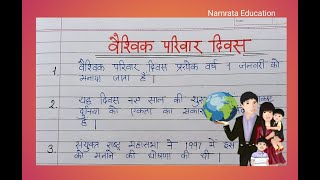 Namrata Education
वैश्विक परिवार दिवस
1. वैश्विक परिवार दिवस प्रत्येक वर्ष 1 जनवरी को
मनाया जाता है ।
2. यह दिवस नए साल की
दुनिया को एकता का
है ।
3. संयुक्त राष्ट्र महासभा ने 1997 में इस
को मनाने की घोषणा की थी ।